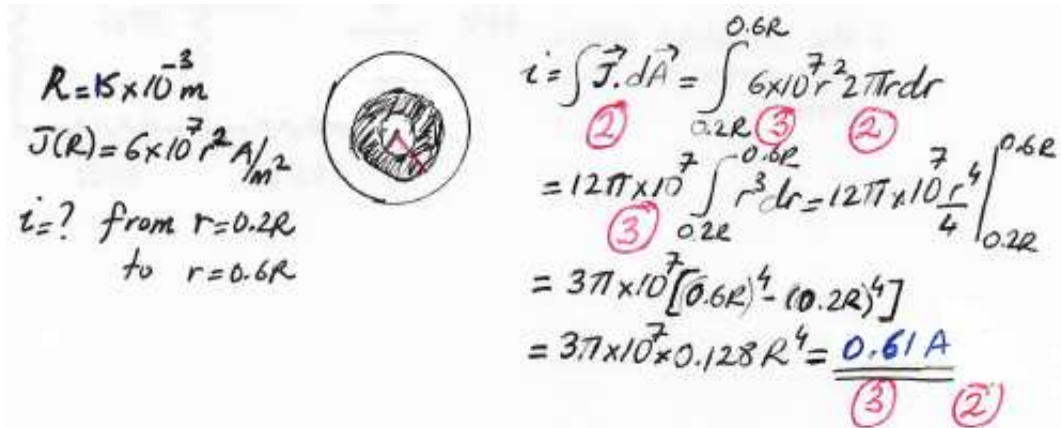 R = 15 × 10⁻³ m
J(R) = 6×10⁷ r² A/m²
i = ? from r = 0.2R
to r = 0.6R
i = ∫ J⃗ . dA⃗ = ∫_{0.2R}^{0.6R} 6×10⁷ r² 2πrdr
② ③ ②
= 12π × 10⁷ ∫_{0.2R}^{0.6R} r³ dr = 12π × 10⁷ r⁴/4 |_{0.2R}^{0.6R}
③
= 3π × 10⁷ [(0.6R)⁴ - (0.2R)⁴]
= 3π × 10⁷ × 0.128 R⁴ = 0.61 A
③ ②